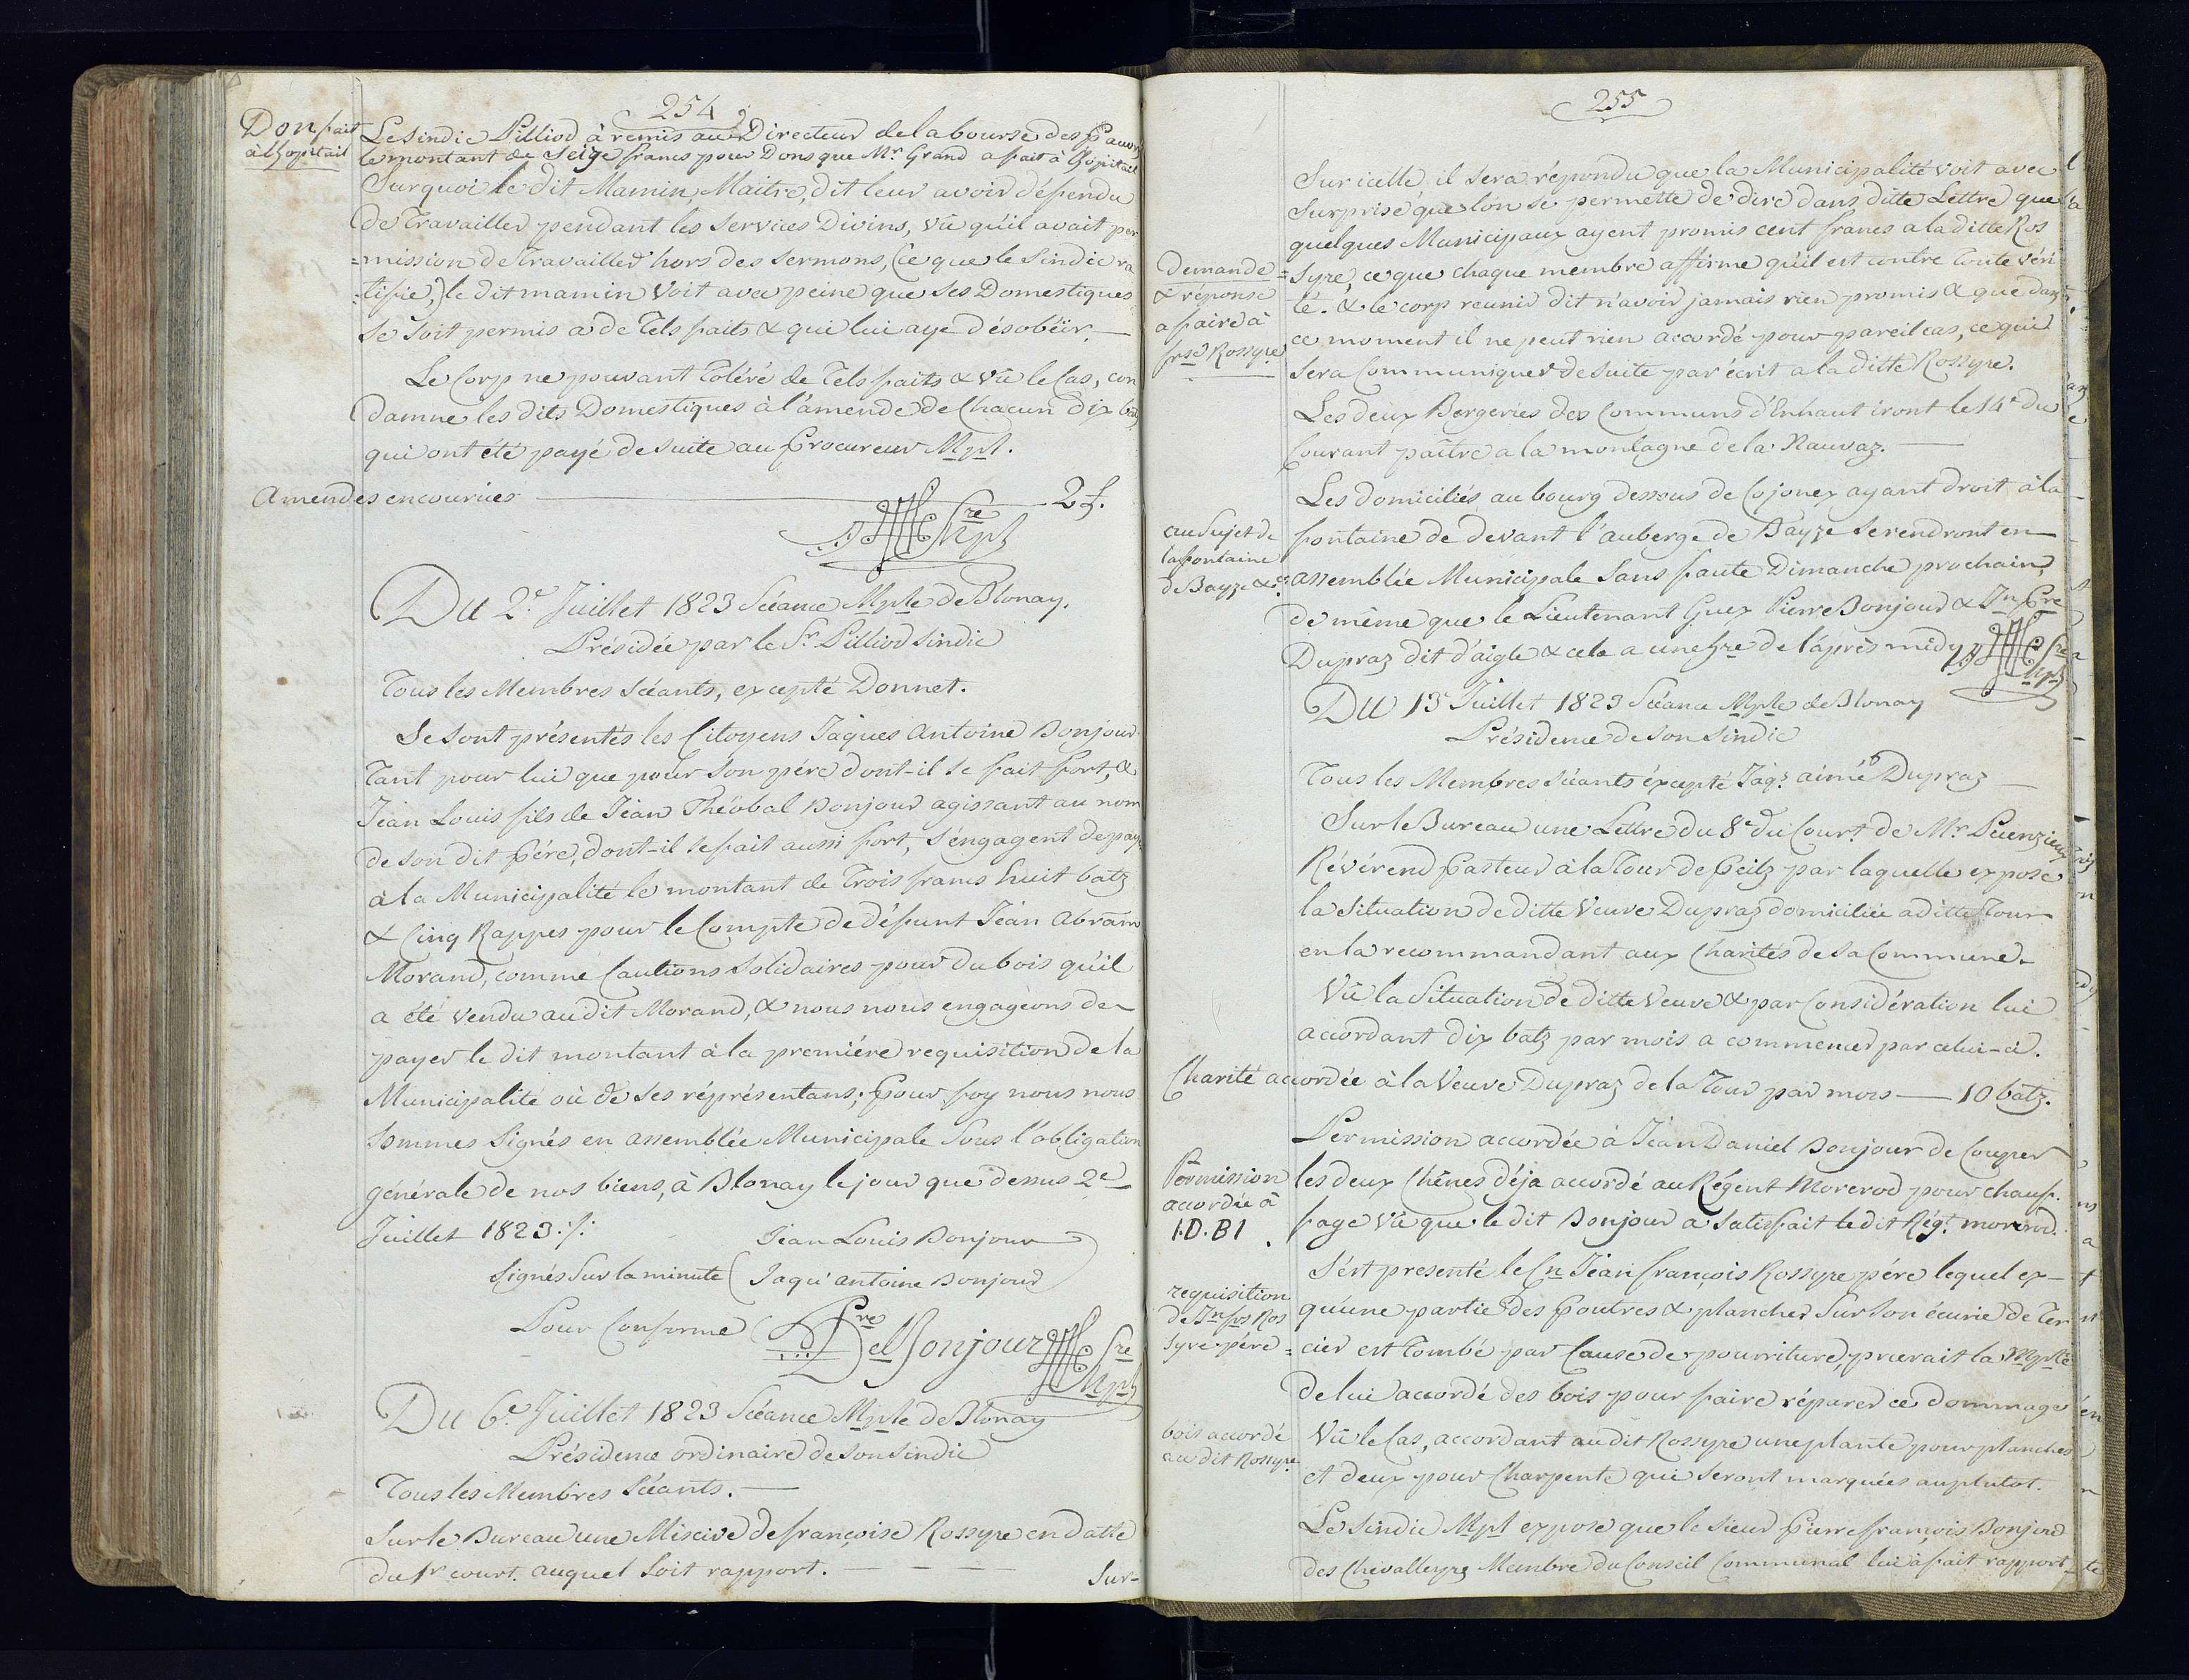 254
Don fait
à l'hopitail
Le sindic Pilliod à remis au Directeur de la bourse des Pauvres
le montant de seize francs pour Dons que Mr. Grand a fait à l'hopitail
Sur quoi le dit Mamin, Maitre, dit leur avoir défendu
de travailler pendant les services Divins, vû qu'il avait per
=mission de travailler hors des sermons, (ce que le Sindic ra
=tifie,) le dit mamin voit avec peine que ses Domestiques
se soit permis à de tels faits & qui lui aye désobéir. —
Le Corp ne pouvant toléré de tels faits & vû le Cas, con
damne les dits Domestiques à l'amende de Chacun dix batz
qui ont été payé de suite au Procureur Mpl.
Amendes encourues — 2 f.
Sre
Mpl
Du 2e. Juillet 1823 Séance Mple de Blonay.
Présidée par le Sr. Pilliod Sindic
Tous les Membres Séants, excepté Donnet.
Se sont présentés les Citoyens Jaques Antoine Bonjour
tant pour lui que pour son pére dont-il se fait fort, &
Jean Louis fils de Jean Théobal Bonjour agissant au nom
de son dit Pére, dont-il se fait aussi fort, s'engagent de payer
à la Municipalité le montant de Trois francs huit batz
& Cinq Rappes pour le Compte de défunt Jean Abram
Morand, comme Cautions Solidaires pour du bois qu'il
a été vendu audit Morand, & nous nous engageons de
payer le dit montant à la premiére requisition de la
Municipalité où de ses réprésentans; Pour foy nous nous
sommes signés en assemblée Municipale sous l'obligation
générale de nos biens, à Blonay le jour que dessus 2e
Juillet 1823 :/: Jean Louis Bonjour
Signés sur la minute ( Jaqu' antoine Bonjour
Pour Conforme ( Pre
Del Bonjour Sre
Mpl
Du 6e. Juillet 1823 Séance Mple de Blonay
Présidence ordinaire de son Sindic
Tous les Membres Séants. —
Sur le Bureau une Miscive de françoise Rossyre en datte
du 1r court. auquel soit rapport. — — — —
Sur-
255
Sur icelle, il sera répondu que la Municipalité voit avec
surprise que l'on se permette de dire dans ditte Lettre que
quelques Municipaux ayent promis cent francs a la ditte Ros
Demande
& réponse
a faire à
frse Rossyre
=syre, ce que chaque membre affirme qu'il est contre toute véri
té. & le corp reunir dit n'avoir jamais rien promis & que dans
ce moment il ne peut rien accordé pour pareil cas, ce qui
sera Communiquer de suite par écrit a la ditte Rossyre.
Les deux Bergeries des Communs d'Enhaut iront le 14e du
Courant paître a la montagne de la Nauvaz. —
Les domiciliés au bourg dessous de Cojonex ayant droit à la
au Sujet de
la fontaine
de Bayze &c.
fontaine de devant l'auberge de Bayze se rendront en
assemblée Municipale sans faute Dimanche prochain,
de même que le Lieutenant Guex Pierre Bonjour & Jn Pre
Dupraz dit d'aigle & cela a une hre de l'après midy
Sre
Mpl
Du 13 Juillet 1823 Séance Mple de Blonay
Présidence de son Sindic
Tous les Membres Séants éxcepté Jaq. aimé Dupraz —
Sur le Bureau une Lettre du 8e du Court. de Mr.
Révérend Pasteur à la Tour de Peilz par laquelle expose
la situation de ditte Veuve Dupraz domiciliée a ditte Tour
en la recommandant aux Charités de sa Commune.
Vû la Situation de ditte Veuve & par Considération lui
accordant dix batz par mois a commencer par celui-ci.
Charité accordée à la Veuve Dupraz de la Tour par mois — 10 batz.
Permission accordée à Jean Daniel Bonjour de Couper
Permission
accordée à
I.D.BI
les deux Chênes déja accordé au Régent Morerod pour chauf.
fage vû que le dit Bonjour a satisfait ledit Régt. morerod.
S'ést presenté le Cn Jean François Rossyre pére lequel ex-
requisition
de Jn frs Ros
syre pére
qu'une partie des poutres & plancher sur son écurie de Ter
=cier est tombé par Cause de pourriture, prierait la Mplté
de lui accordé des bois pour faire réparer ce dommage
bois accordé
au dit Rossyre
Vû le Cas, accordant audit Rossyre une plante pour planches
et deux pour Charpente qui seront marquées au plutot.
Le Sindic Mpl expose que le sieur Pierre françois Bonjour
des Chevalleyre Membre du Conseil Communal lui à fait rapport